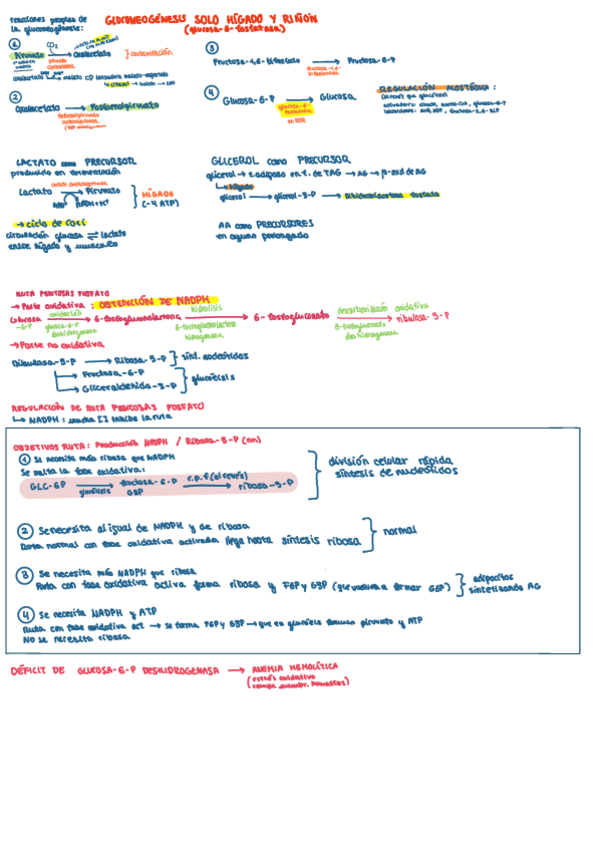 reacciones propias de la gluconeogénesis:
GLUCONEOGÉNESIS SOLO HÍGADO Y RIÑÓN
(glucosa-6-fosfatasa)
①
CO₂
Piruvato → Oxalacetato } carboxilación
piruvato carboxilasa
oxalacetato → malato ⇨ lanzadera malato-aspartato
②
Oxalacetato → Fosfoenolpiruvato
③
Fructosa-1,6-bifosfato → Fructosa-6-P
fructosa-1,6-bifosfatasa
④ Glucosa-6-P → Glucosa
glucosa-6-fosfatasa
REGULACIÓN ALOSTÉRICA:
LACTATO como PRECURSOR
producido en fermentación
Lactato → Piruvato } HÍGADO (-4 ATP)
lactato deshidrogenasa
NAD⁺ NADH+H⁺
→ ciclo de Cori
circulación glucosa ⇌ lactato
entre hígado y músculo
GLICEROL como PRECURSOR
glicerol → t.adiposo en f. de TAG → AG → β-oxd de AG
↳ hígado
glicerol → glicerol-3-P → dihidroxiacetona fosfato
AA como PRECURSORES
en ayuno prolongado
RUTA PENTOSAS FOSFATO
→ Parte oxidativa: OBTENCIÓN DE NADPH
Glucosa-6-P → 6-fosfogluconolactona → 6-fosfogluconato → ribulosa-5-P
oxidación hidrólisis descarboxilación oxidativa
glucosa-6-P deshidrogenasa
6-fosfogluconolactona hidrogenasa
6-fosfogluconato deshidrogenasa
→ Parte no oxidativa
Ribulosa-5-P → Ribosa-5-P } sínt. nucleótidos
→ Fructosa-6-P
→ Gliceraldehído-3-P } glucólisis
REGULACIÓN DE RUTA PENTOSAS FOSFATO
↳ NADPH: mucha [] inhibe la ruta
OBJETIVOS RUTA: Producción NADPH / Ribosa-5-P (nn)
① Se necesita más ribosa que NADPH
Se salta la fase oxidativa:
GLC-6P → fructosa-6-P G3P → ribosa-5-P
glucólisis r.p.f (al revés)
} división celular rápida
síntesis de nucleótidos
② Se necesita al igual de NADPH y de ribosa
Ruta normal con fase oxidativa activada llega hasta síntesis ribosa } normal
③ Se necesita más NADPH que ribosa
Ruta con fase oxidativa activa forma ribosa y F6P y G3P (que vuelven a formar G6P) } adipocitos sintetizando AG
④ Se necesita NADPH y ATP
Ruta con fase oxidativa act → se forma F6P y G3P → que en glucólisis forman piruvato y ATP
No se necesita ribosa
DÉFICIT DE GLUCOSA-6-P DESHIDROGENASA → ANEMIA HEMOLÍTICA
(estrés oxidativo